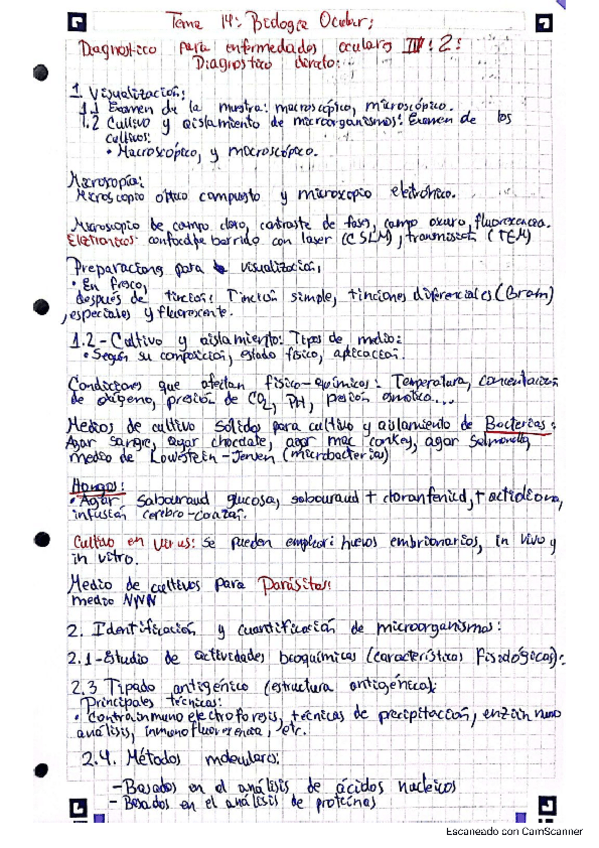 Tema 14: Biología Ocular:
Diagnostico para enfermedades oculares III: 2:
Diagnostico directo:
1. Visualización:
1.1 Examen de la muestra: macroscópico, microscópico.
1.2 Cultivo y aislamiento de microorganismos: Examen de los
cultivos:
• Macroscópico, y microscópico.
Microscopía:
Microscopio óptico compuesto y microscopio electrónico.
Microscopio de campo claro, contraste de fases, campo oscuro, fluorescencia.
Eletronicos: confocal de barrido con laser (CSLM), transmisión (TEM)
Preparaciones para visualización:
• En fresco,
después de tinción: Tinción simple, tinciones diferenciales (Gram)
, especiales y fluorescente.
1.2 - Cultivo y aislamiento: Tipos de medio:
• Según su composición, estado físico, aplicación.
Condiciones que afectan físico-químicos: Temperatura, concentración
de oxígeno, presión de CO2, PH, presión osmótica...
Medios de cultivo sólidos para cultivo y aislamiento de Bacterias:
Agar sangre, agar chocolate, agar mac conkey, agar Salmonella,
medio de Lowestein-Jensen (micobacterias)
Hongos:
• Agar sabouraud glucosa, sabouraud + cloranfenicol, + actidiona,
infusión cerebro-corazón.
Cultivo en virus: Se pueden emplear: huevos embrionarios, in vivo y
in vitro.
Medio de cultivos para Parásitos:
medio NNN
2. Identificación y cuantificación de microorganismos:
2.1 - Estudio de actividades bioquímicas (características fisiológicas):
2.3 Tipado antigénico (estructura antigénica):
Principales técnicas:
• Contrainmunoelectroforesis, técnicas de precipitación, enzimoinmuno
análisis, inmunofluorescencia, etc.
2.4. Métodos moleculares:
- Basados en el análisis de ácidos nucleicos
- Basados en el análisis de proteínas
Escaneado con CamScanner